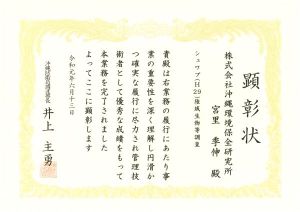 顕彰状
株式会社沖縄環境保全研究所
宮里 季伸 殿
シュワブ(H29)海域生物等調査
貴殿は右業務の履行にあたり事
業の重要性を深く理解し円滑か
つ確実な履行に尽力され管理技
術者として優秀な成績をもって
本業務を完了されました
よってここに顕彰します
令和元年六月十三日
沖縄防衛局調達部長
井上 主勇